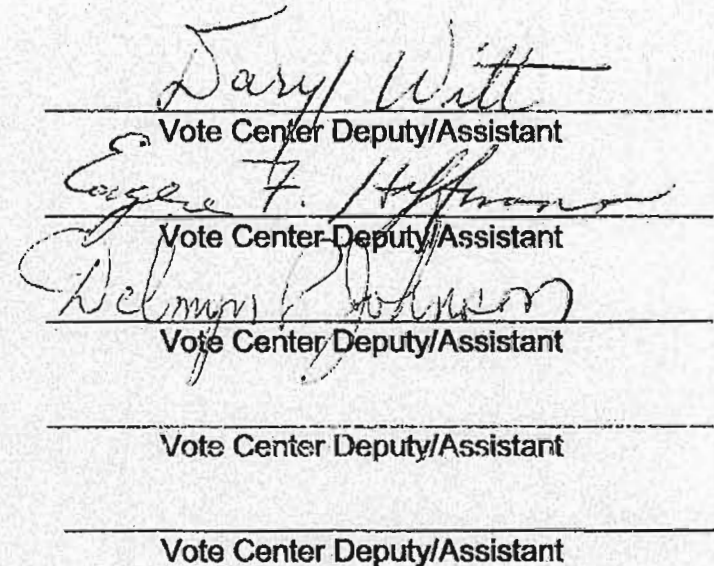 Daryl Witt
Vote Center Deputy/Assistant
Eugene F. Hoffmann
Vote Center Deputy/Assistant
Johnson
Vote Center Deputy/Assistant
Vote Center Deputy/Assistant
Vote Center Deputy/Assistant